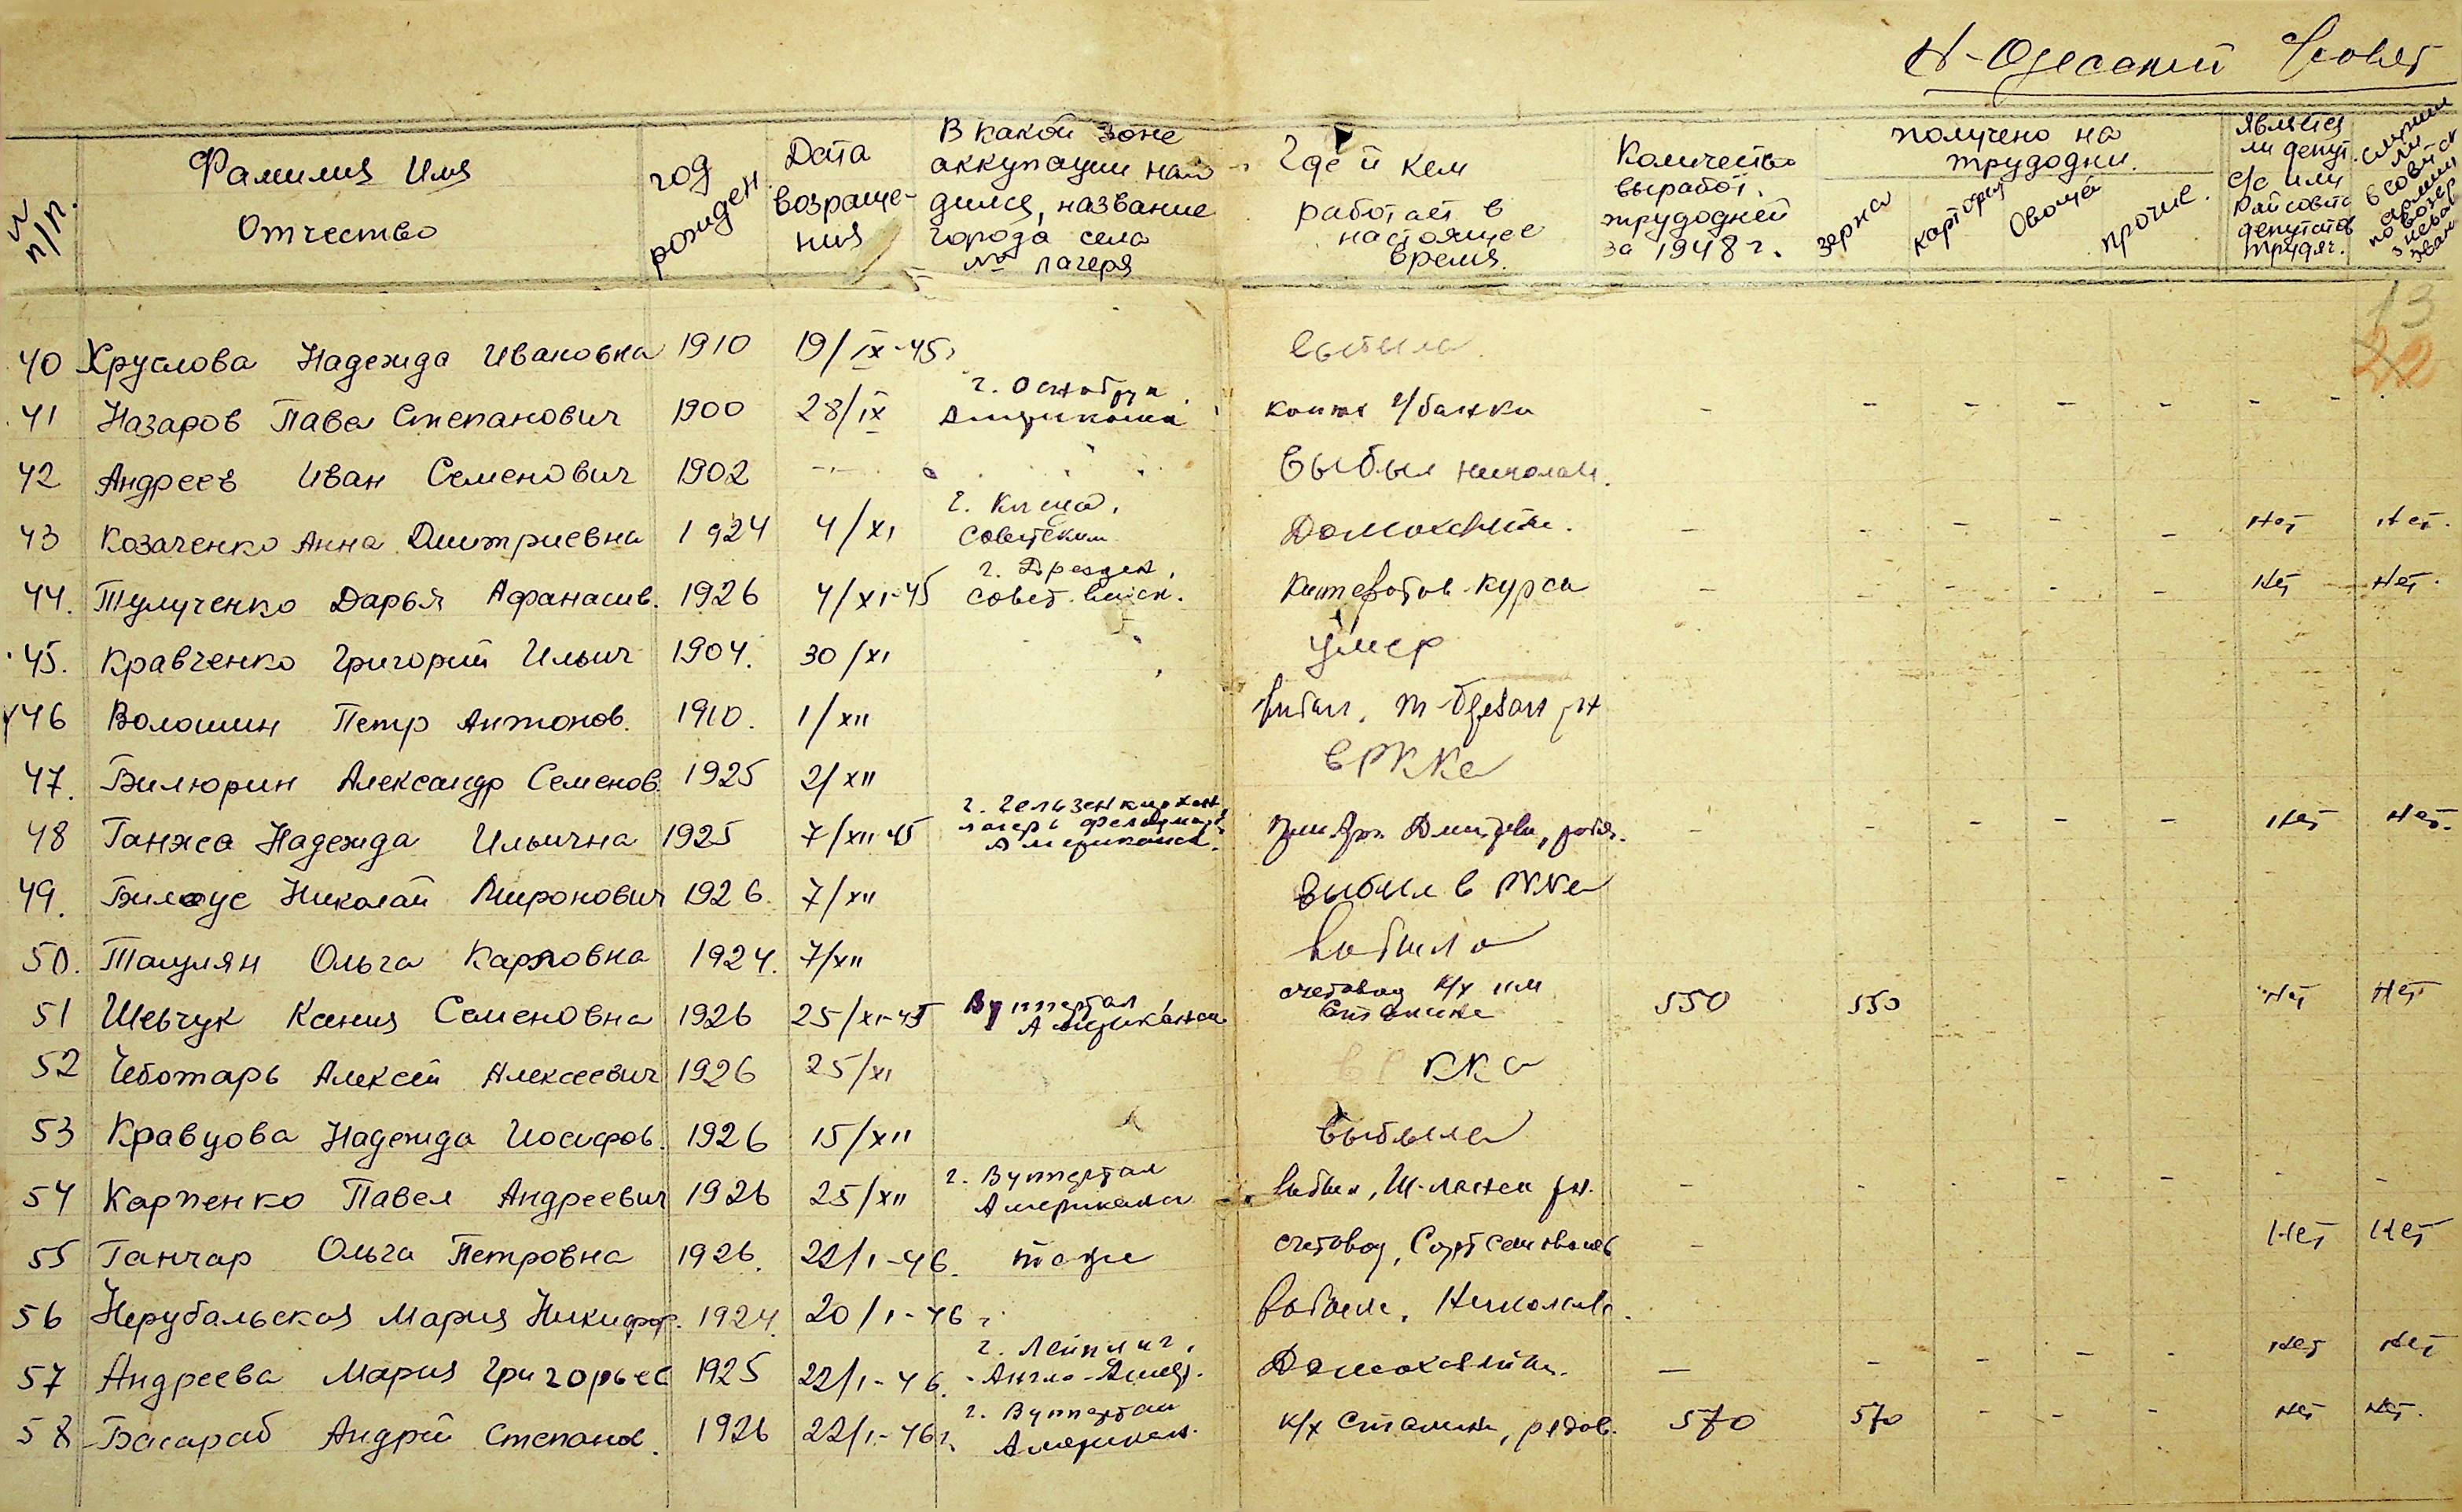 Н-Одесский Совет
№ п/п.
Фамилия Имя Отчество
год рожден.
Дата возраще-ния
В какой зоне аккупации нахо-дился, название города села № лагеря
Где и кем работает в настоящее время.
Количество выработ. трудодней за 1948 г.
получено на трудодни.
зерна
картофеля
Овощей
прочие.
Является ли депут. с/с или Райсовета депутатов трудящ.
13
22
40 Хруслова Надежда Ивановна 1910 19/IX-45г выбыла
41 Назаров Павел Степанович 1900 28/IX Г/банка - - - - - - -
42 Андреев Иван Семенович 1902 -"- Выбыл Николаев.
43 Козаченко Анна Дмитриевна 1924 4/XI Советским Домохозяйк. - - - - - Нет Нет.
44. Тулученко Дарья Афанасив. 1926 4/XI-45 г. Дрезден, Совет. курсы - - - - - Нет Нет.
45. Кравченко Григорий Ильич 1904. 30/XI умер
46 Волошин Петр Антонов. 1910. 1/XII
47. Билюрин Александр Семенов. 1925 2/XII в РККа
48 Ганжа Надежда Ильична 1925 7/XII 45 г. Гельзенкирхен, лагерь Американск. - - - - - Нет Нет.
49. Билоус Николай Миронович 1926. 7/XII Выбыл в РККа
50. Ольга Карповна 1924. 7/XII выбыла
51 Шевчук Ксения Семеновна 1926 25/XI-45 Вуппертал Американск счетовод к/х им Сталина 550 550 Нет Нет
52 Чеботарь Алексей Алексеевич 1926 25/XI в РККа
53 Кравцова Надежда Иосифов. 1926 15/XII выбыла
54 Карпенко Павел Андреевич 1926 25/XII г. Вуппертал Американск выбыл, - - - - - - -
55 Ганчар Ольга Петровна 1926. 22/I-46. тоже счетовод, - Нет Нет
56 Нерубальская Мария Никифор. 1924. 20/I-46 г выбыла, Николаев.
57 Андреева Мария Григорьев 1925 22/I-46. г. Лейпциг, Англо-Амер. Домохозяйк. - - - - - Нет Нет
58 Басараб Андрей Степанов. 1926 22/I-46г. г. Вуппертал Американ. к/х Сталина, рядов. 570 570 - - - Нет Нет.